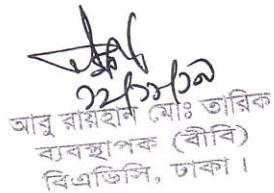 ১২/১১/১৯
আবু রায়হান মোঃ তারিক
ব্যবস্থাপক (বীবি)
বিএডিসি, ঢাকা।